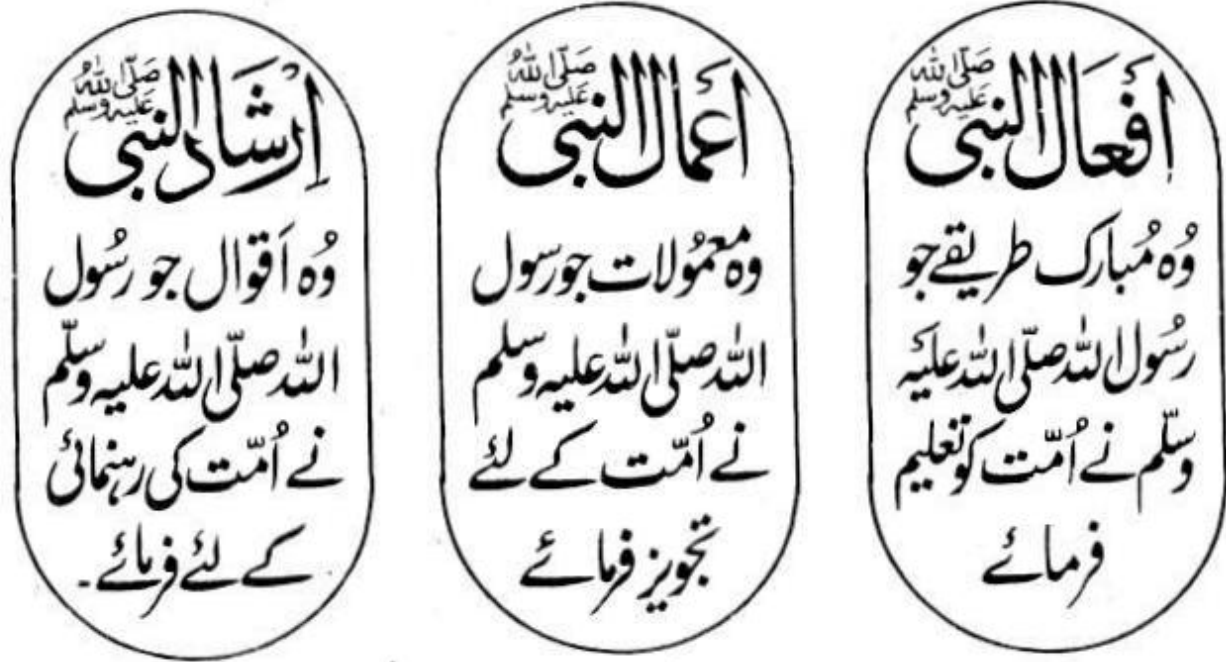 أَفْعَالُ النبی صَلَّی اللہُ عَلَیہِ وَسلم
وُہ مُبارک طریقے جو
رسُول اللہ صلّی اللہ علیَہ
وسلّم نے اُمّت کو تعلیم
فرمائے
أعمال النبی صَلَّی اللہُ عَلَیہِ وَسلم
وہ معمُولات جو رسول
اللہ صلّی اللہ علیہ وسلم
نے اُمّت کے لئے
تجویز فرمائے
اِرْشَادُ النبی صَلَّی اللہُ عَلَیہِ وَسلم
وُہ اَقوال جو رسُول
اللہ صلّی اللہ علیہ وسلّم
نے اُمّت کی رہنمائی
کے لئے فرمائے۔